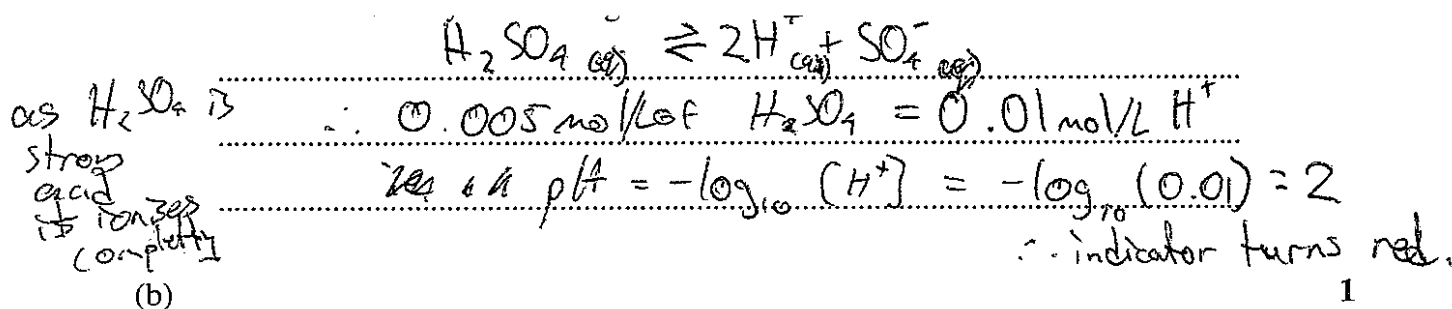 H₂SO₄ (aq) ⇌ 2H⁺(aq) + SO₄⁻ (aq)
as H₂SO₄ is
strong
acid
it ionises
completly
∴ 0.005 mol/L of H₂SO₄ = 0.01 mol/L H⁺
pH = -log₁₀ [H⁺] = -log₁₀ (0.01) = 2
∴ indicator turns red.
(b) 1